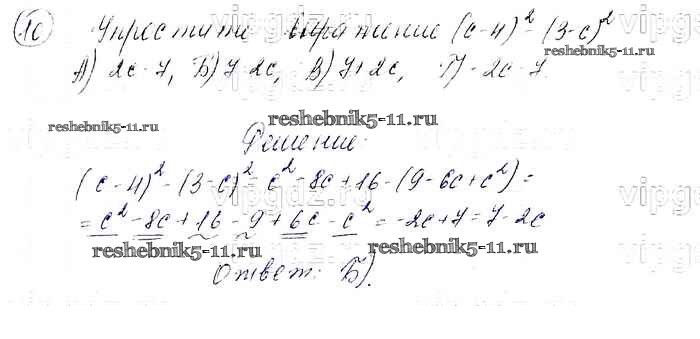 10 Упростите выражение (c-4)² - (3-c)²
А) 2c-7, Б) 7-2c, В) 7+2c, Г) -2c-7.
Решение.
(c-4)² - (3-c)² = c² - 8c + 16 - (9 - 6c + c²) =
= c² - 8c + 16 - 9 + 6c - c² = -2c + 7 = 7 - 2c
Ответ: Б).
vipgdz.ru
reshebnik5-11.ru
reshebnik5-11.ru
reshebnik5-11.ru
reshebnik5-11.ru
reshebnik5-11.ru